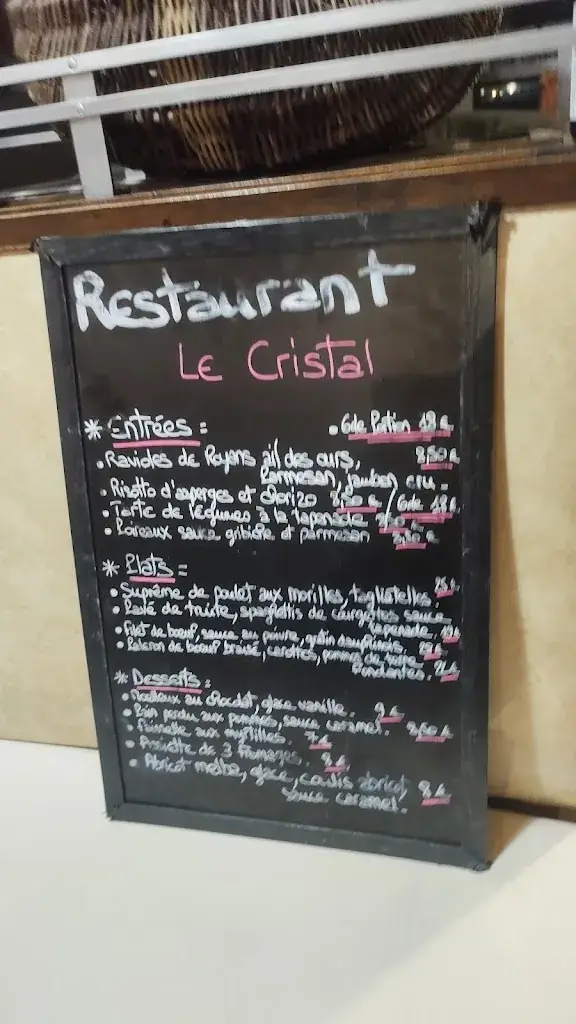 Restaurant
Le Cristal
* Entrées : • Gde Portion 18 €
• Ravioles de Royans ail des ours, 8,50 €
Parmesan, jambon cru.
• Risotto d'asperges et chorizo 8,50 € / Gde 18 €
• Tarte de légumes à la tapenade
• Poireaux sauce gribiche et parmesan
* Plats :
• Suprême de poulet aux morilles, tagliatelles. 25 €
• Pavé de truite, spaghettis de courgettes sauce
tapenade. 19 €
• Filet de boeuf, sauce au poivre, gratin dauphinois.
• Paleron de boeuf braisé, carottes, pommes de terre
Fondantes.
* Desserts :
• Moelleux au chocolat, glace vanille. 9 €
• Pain perdu aux pommes, sauce caramel. 8,50 €
• aux myrtilles. 7 €
• Assiette de 3 Fromages. 8 €
• Abricot melba, glace, coulis abricot, 8 €
sauce caramel.